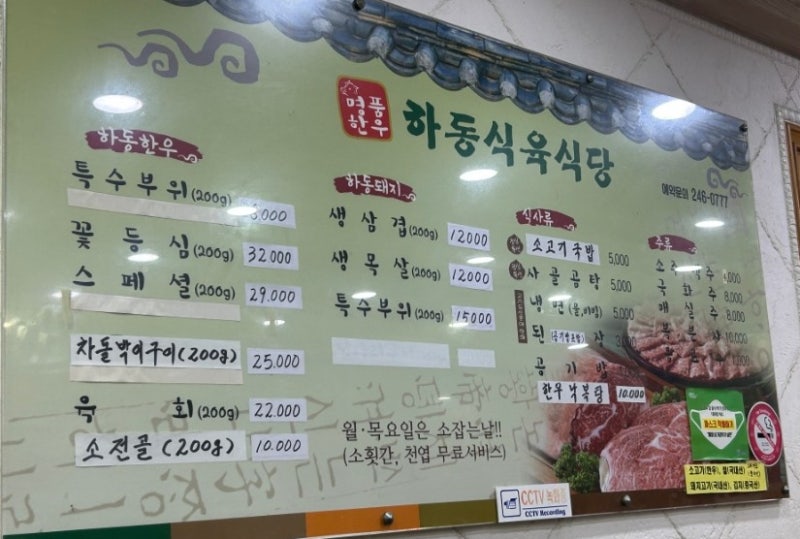 명품
한우
하동식육식당
예약문의 246-0777
하동한우
특수부위(200g)
꽃등심(200g) 32,000
스페셜(200g) 29,000
차돌박이구이(200g) 25,000
육회(200g) 22,000
소전골(200g) 10,000
하동돼지
생삼겹(200g) 12000
생목살(200g) 12000
특수부위(200g) 15000
월·목요일은 소잡는날!!
(소횟간, 천엽 무료서비스)
식사류
소고기국밥 5,000
사골곰탕 5,000
냉면(물,비빔) 5,000
된 장
공기밥
한우낙복탕 10,000
주류
국화주 8,000
매실주 8,000
CCTV 녹화중
CCTV Recording
소고기(한우), 쌀(국내산)
돼지고기(국내산), 김치(중국산)